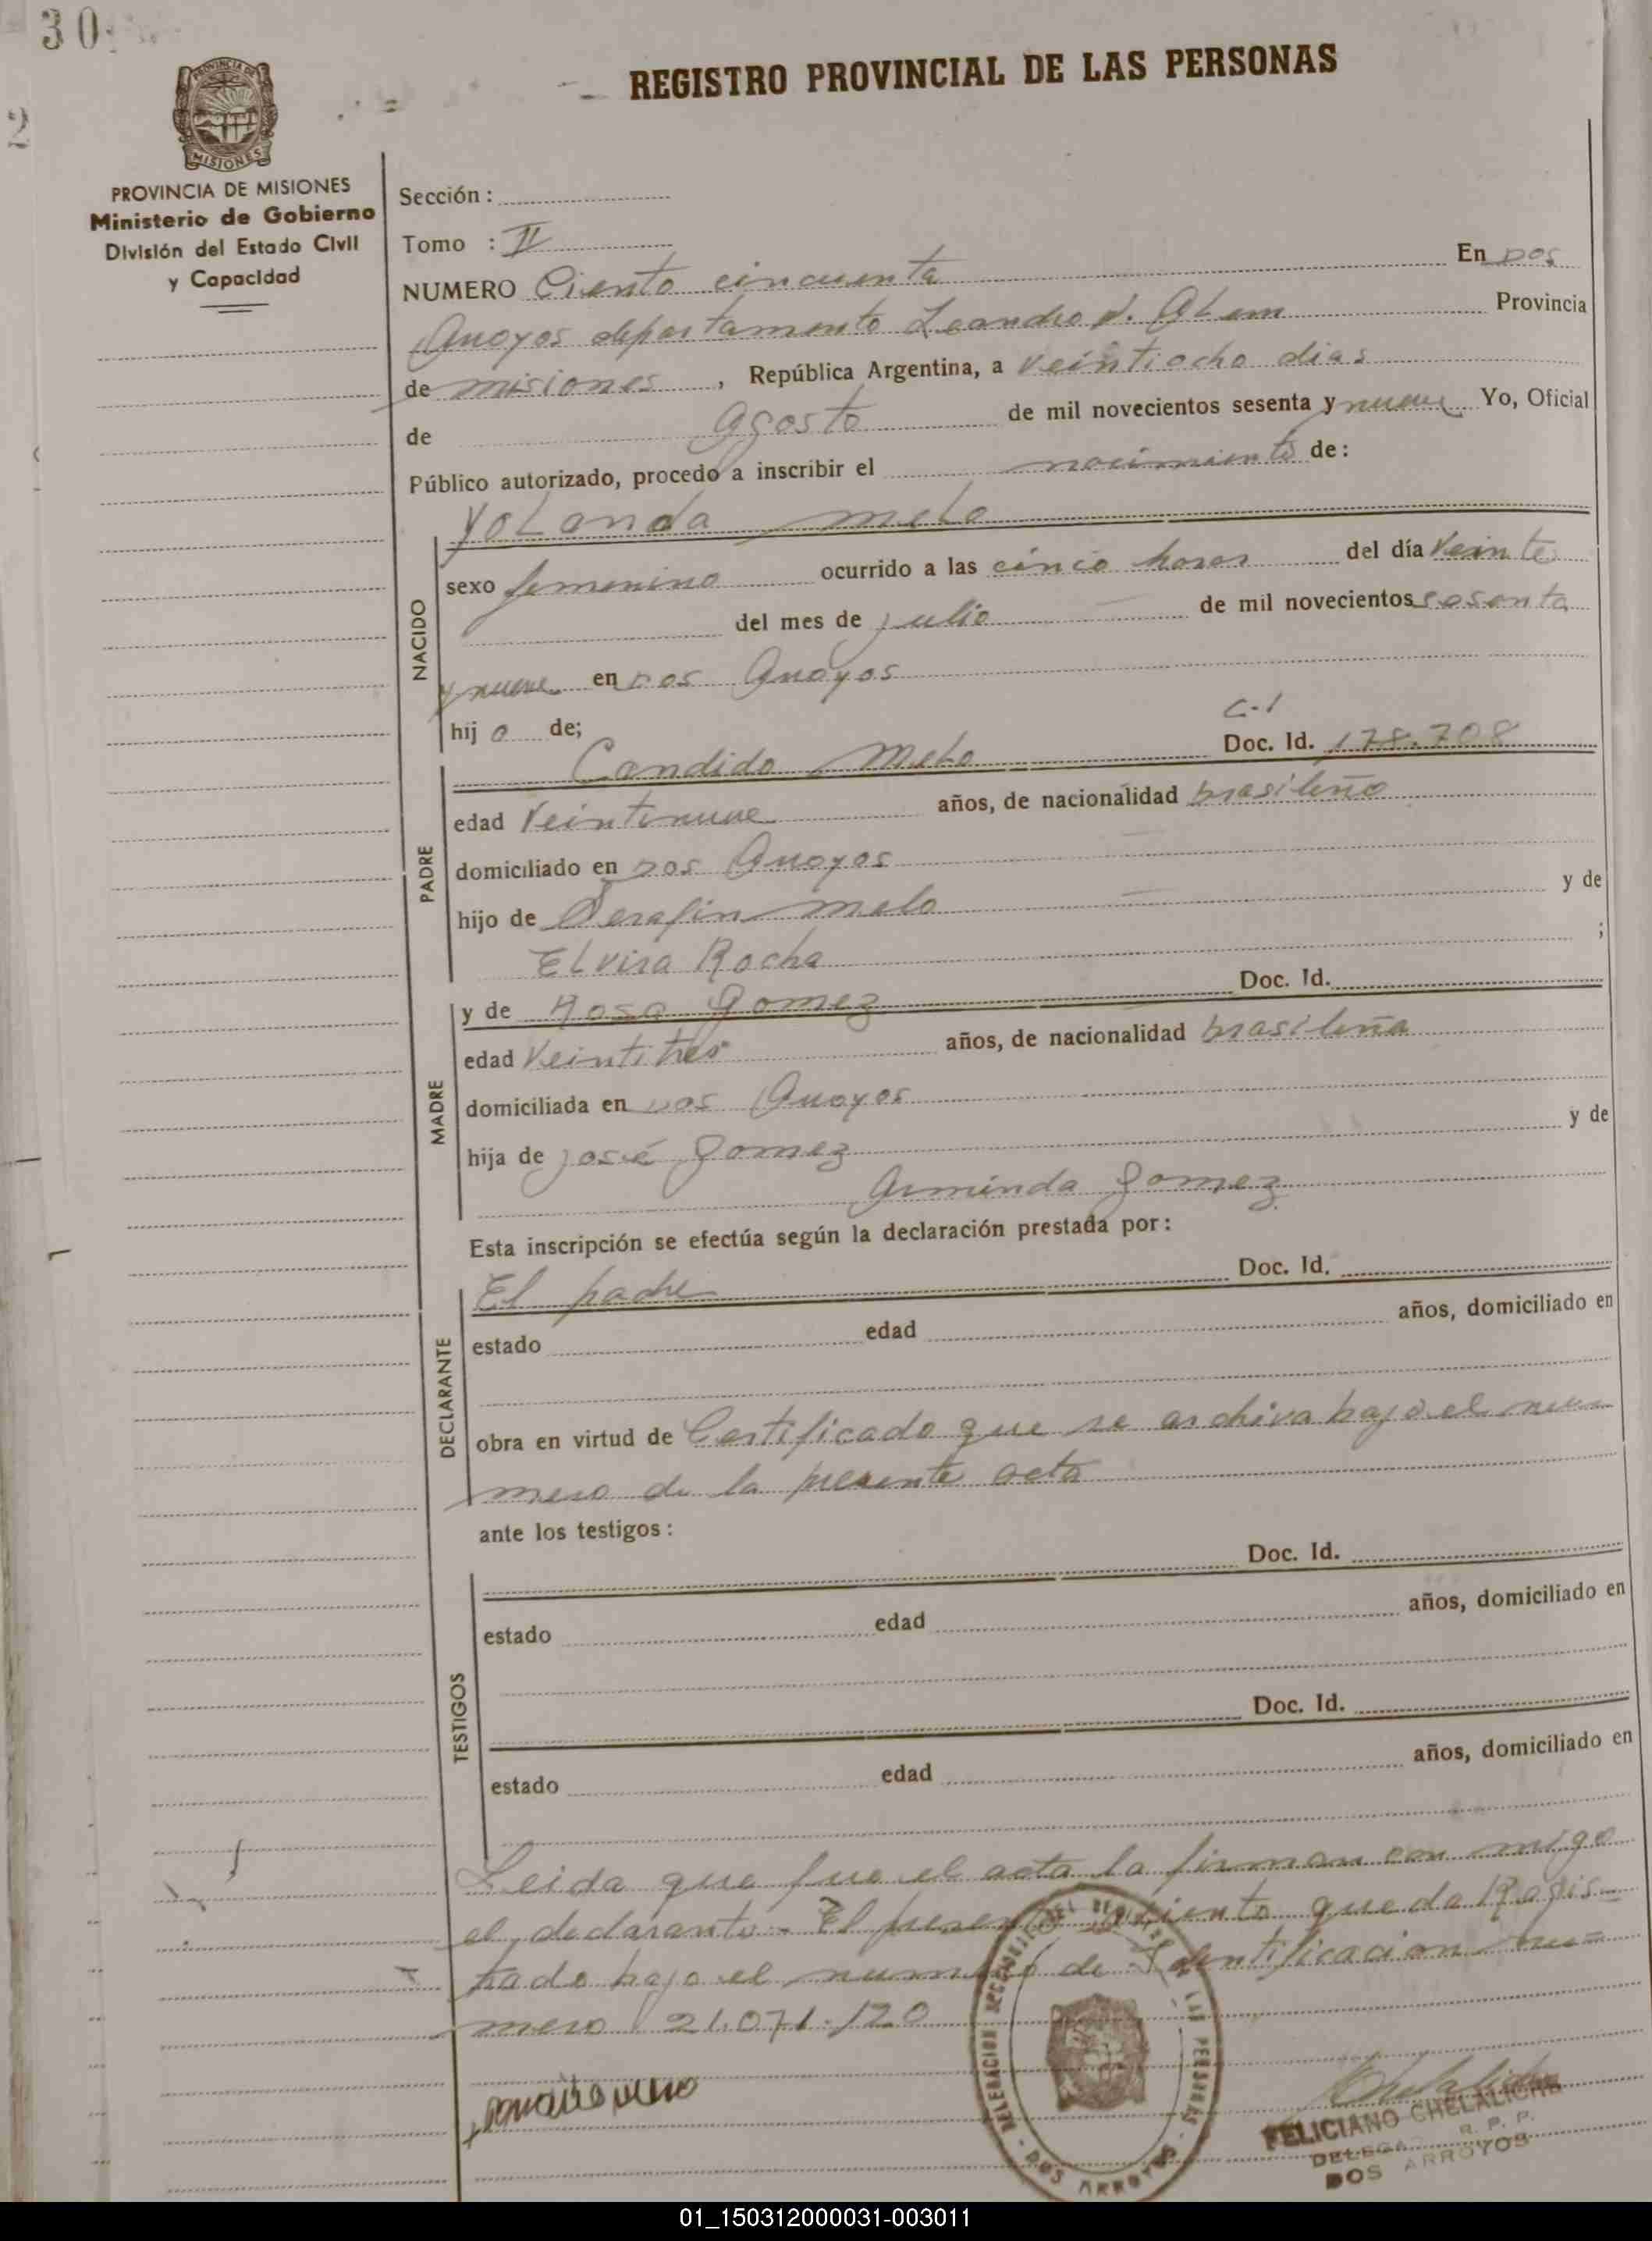 30
REGISTRO PROVINCIAL DE LAS PERSONAS
2
PROVINCIA DE
MISIONES
PROVINCIA DE MISIONES
Ministerio de Gobierno
División del Estado Civil
y Capacidad
Sección :
Tomo : II
NUMERO Ciento cincuenta En Dos
Arroyos departamento Leandro N. Alem Provincia
de misiones , República Argentina, a veintiocho dias
de Agosto de mil novecientos sesenta y nueve Yo, Oficial
Público autorizado, procedo a inscribir el nacimiento de:
Yolanda melo
NACIDO
sexo femenino ocurrido a las cinco horas del día veinte
del mes de julio de mil novecientos sesenta
y nueve en Dos Arroyos
hij a de;
C-I
Candido Melo Doc. Id. 178.708
PADRE
edad Veintinueve años, de nacionalidad brasileño
domiciliado en Dos Arroyos
hijo de Serafin melo y de
Elvira Rocha ;
MADRE
y de Rosa Gomez Doc. Id.
edad Veintitres años, de nacionalidad brasileña
domiciliada en Dos Arroyos
hija de José Gomez y de
Arminda Gomez
Esta inscripción se efectúa según la declaración prestada por:
DECLARANTE
El padre Doc. Id.
estado edad años, domiciliado en
obra en virtud de Certificado que se archiva bajo el nu-
mero de la presente acta
ante los testigos :
TESTIGOS
Doc. Id.
estado edad años, domiciliado en
Doc. Id.
estado edad años, domiciliado en
Leida que fue el acta la firman con migo
el declarante - El presente queda Regis-
trado bajo el numero de Identificacion nu-
mero 21.071.120
DELEGACION SECCIONAL DEL REGISTRO DE LAS PERSONAS - DOS ARROYOS -
candido melo
Chelaliche
FELICIANO CHELALICHE
DELEGADO R. P. P.
DOS ARROYOS
01_150312000031-003011